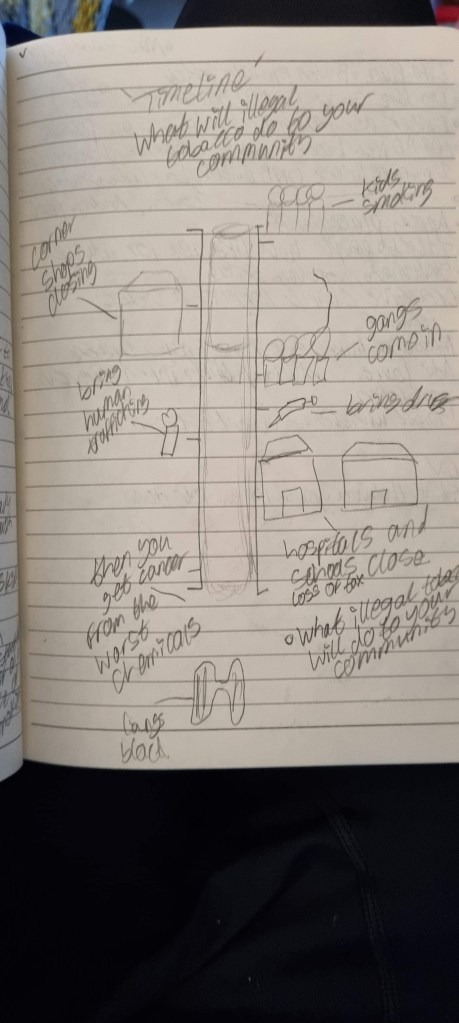 Timeline
What will illegal
tobacco do to your
community
kids
smoking
corner
shops
closing
gangs
com in
bring
human
traffiching
bring drugs
hospitals and
schools close
loss of tax
then you
get cancer
from the
worst
chemicals
What illegal
will do to your
community
lungs
black